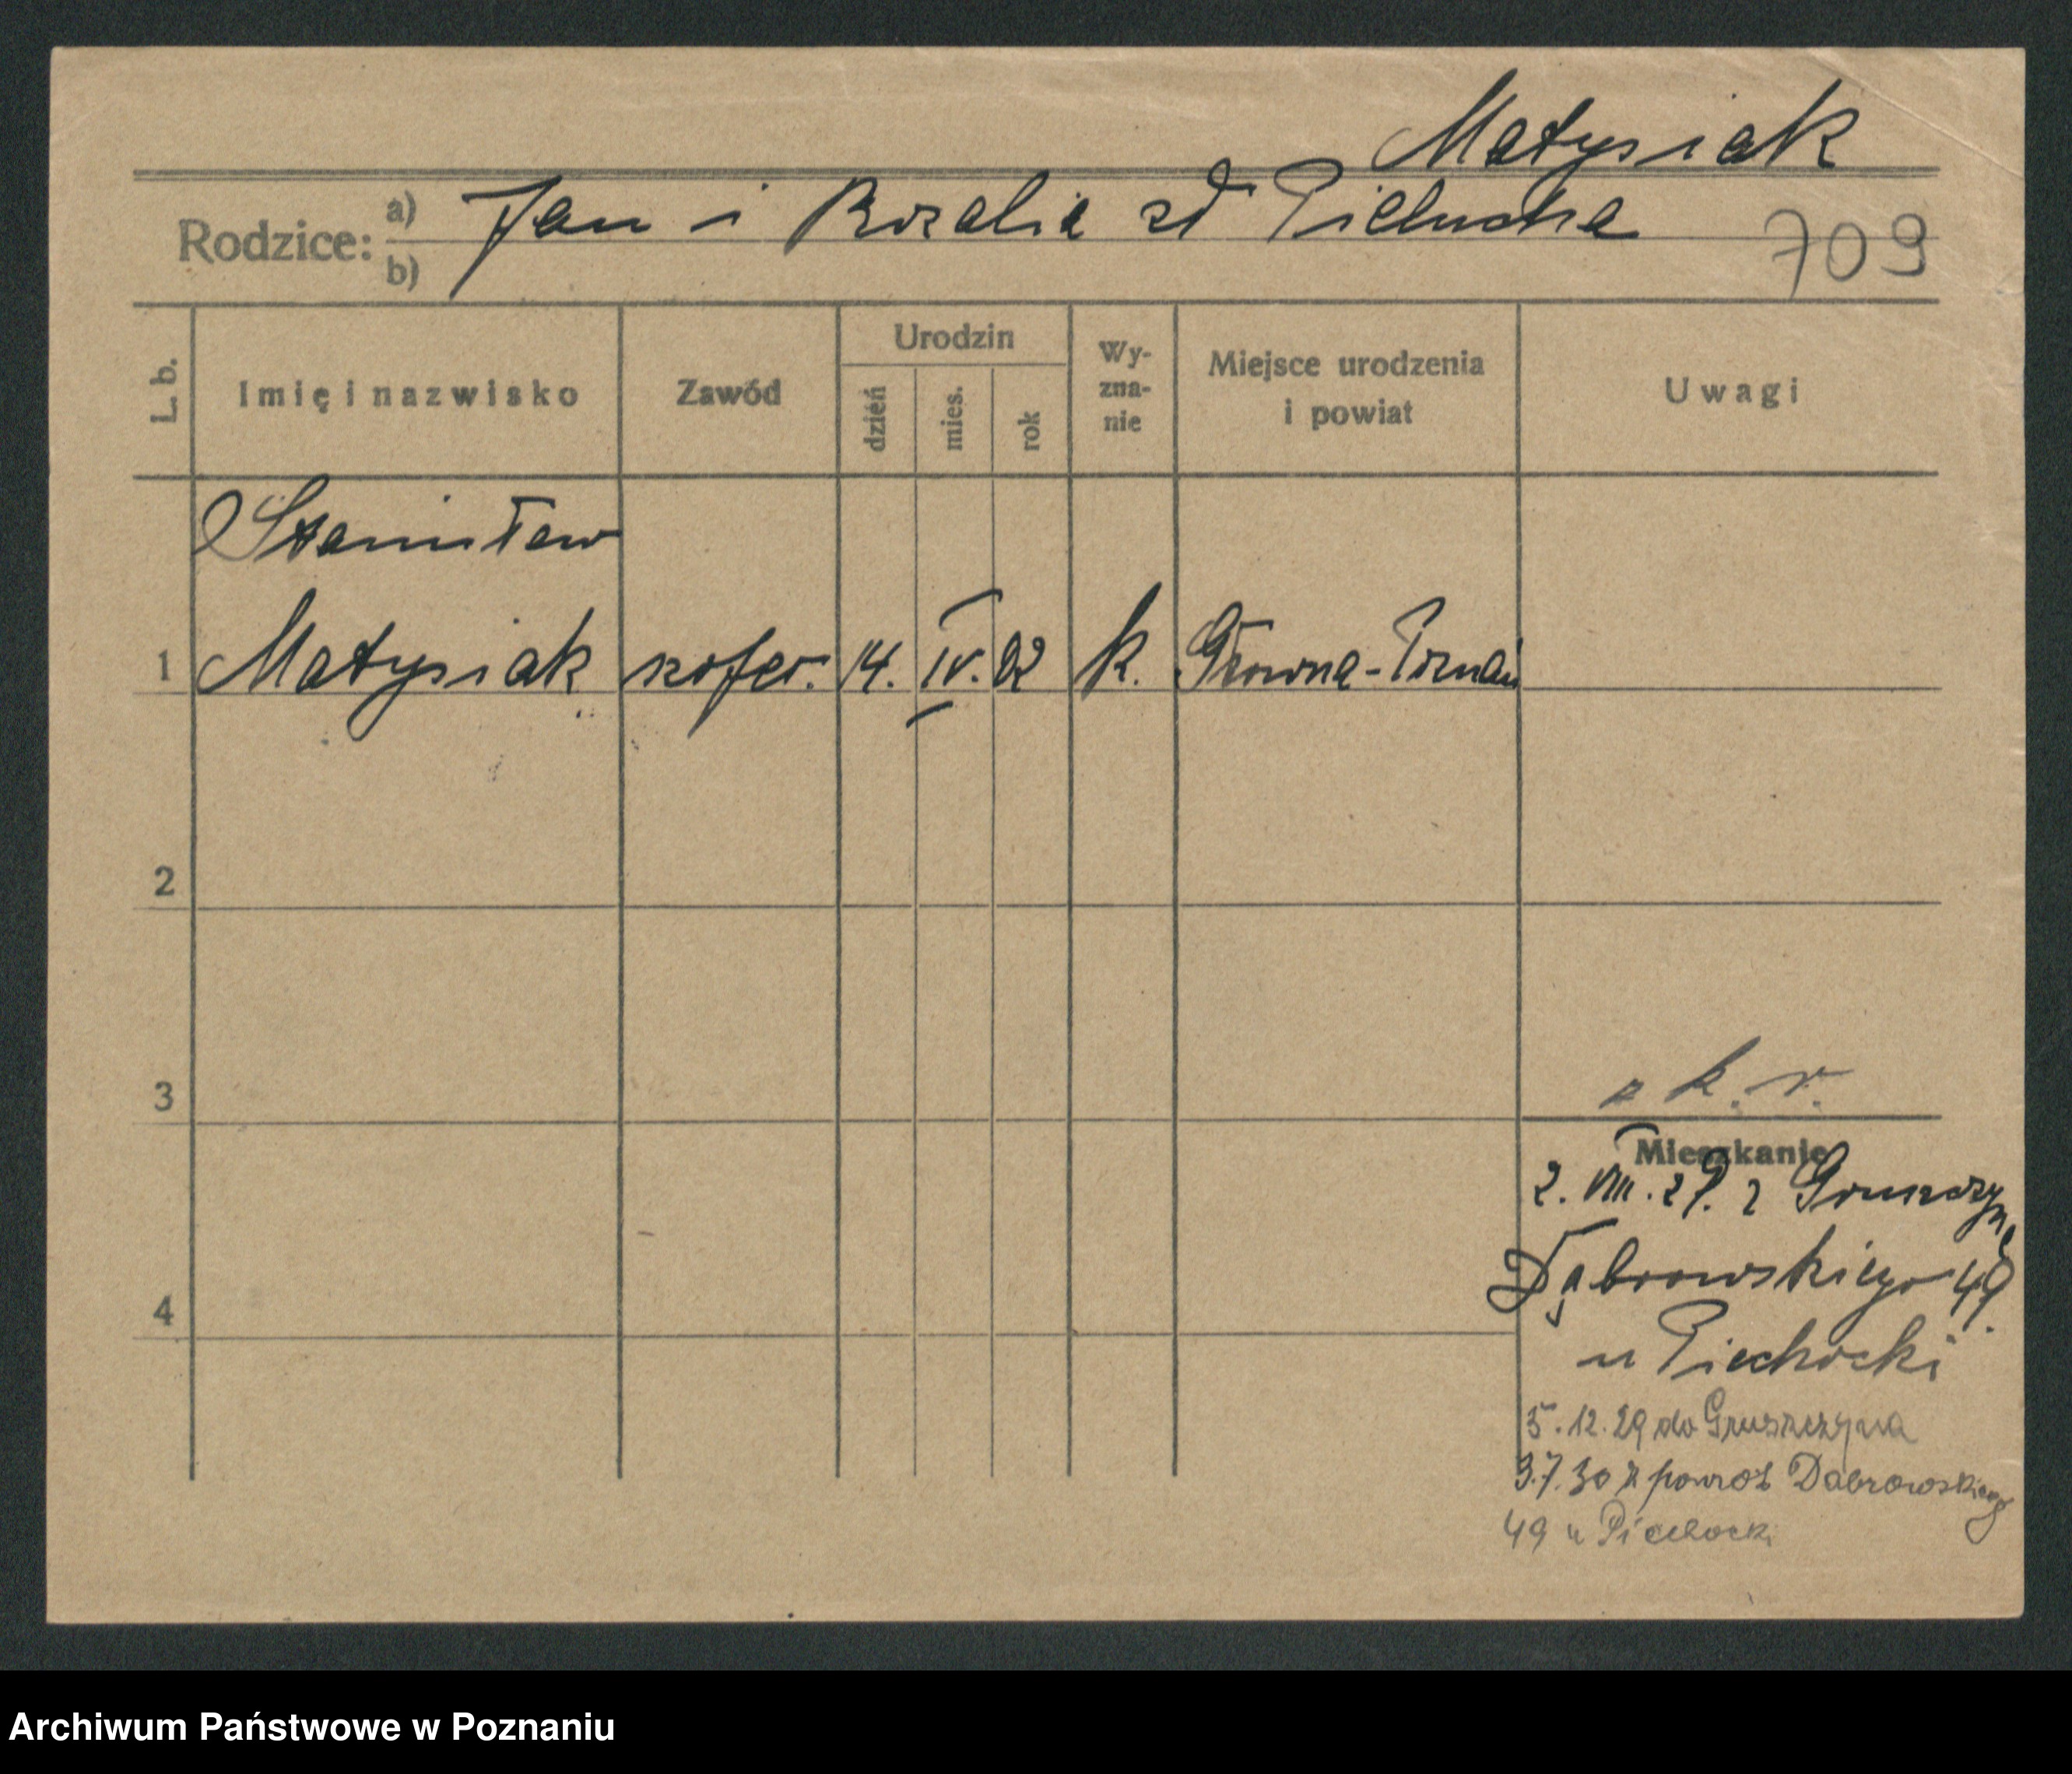 Matysiak
Rodzice: a) Jan i Rozalia zd Pielucha
b)
709
L. b.
Imię i nazwisko
Zawód
Urodzin
dzień
mies.
rok
Wy-
zna-
nie
Miejsce urodzenia
i powiat
Uwagi
Stanisław
1 Matysiak szofer. 14. IV. 02 k. Główna-Poznań
2
3
z k. r.
Mieszkanie
2. VIII. 29. z Gruszczyna
Dąbrowskiego 49.
4
u Piechocki
5.12.29 do Gruszczyna
3.7.30 z powrot Dabrowskiego
49 u Piechocki
Archiwum Państwowe w Poznaniu